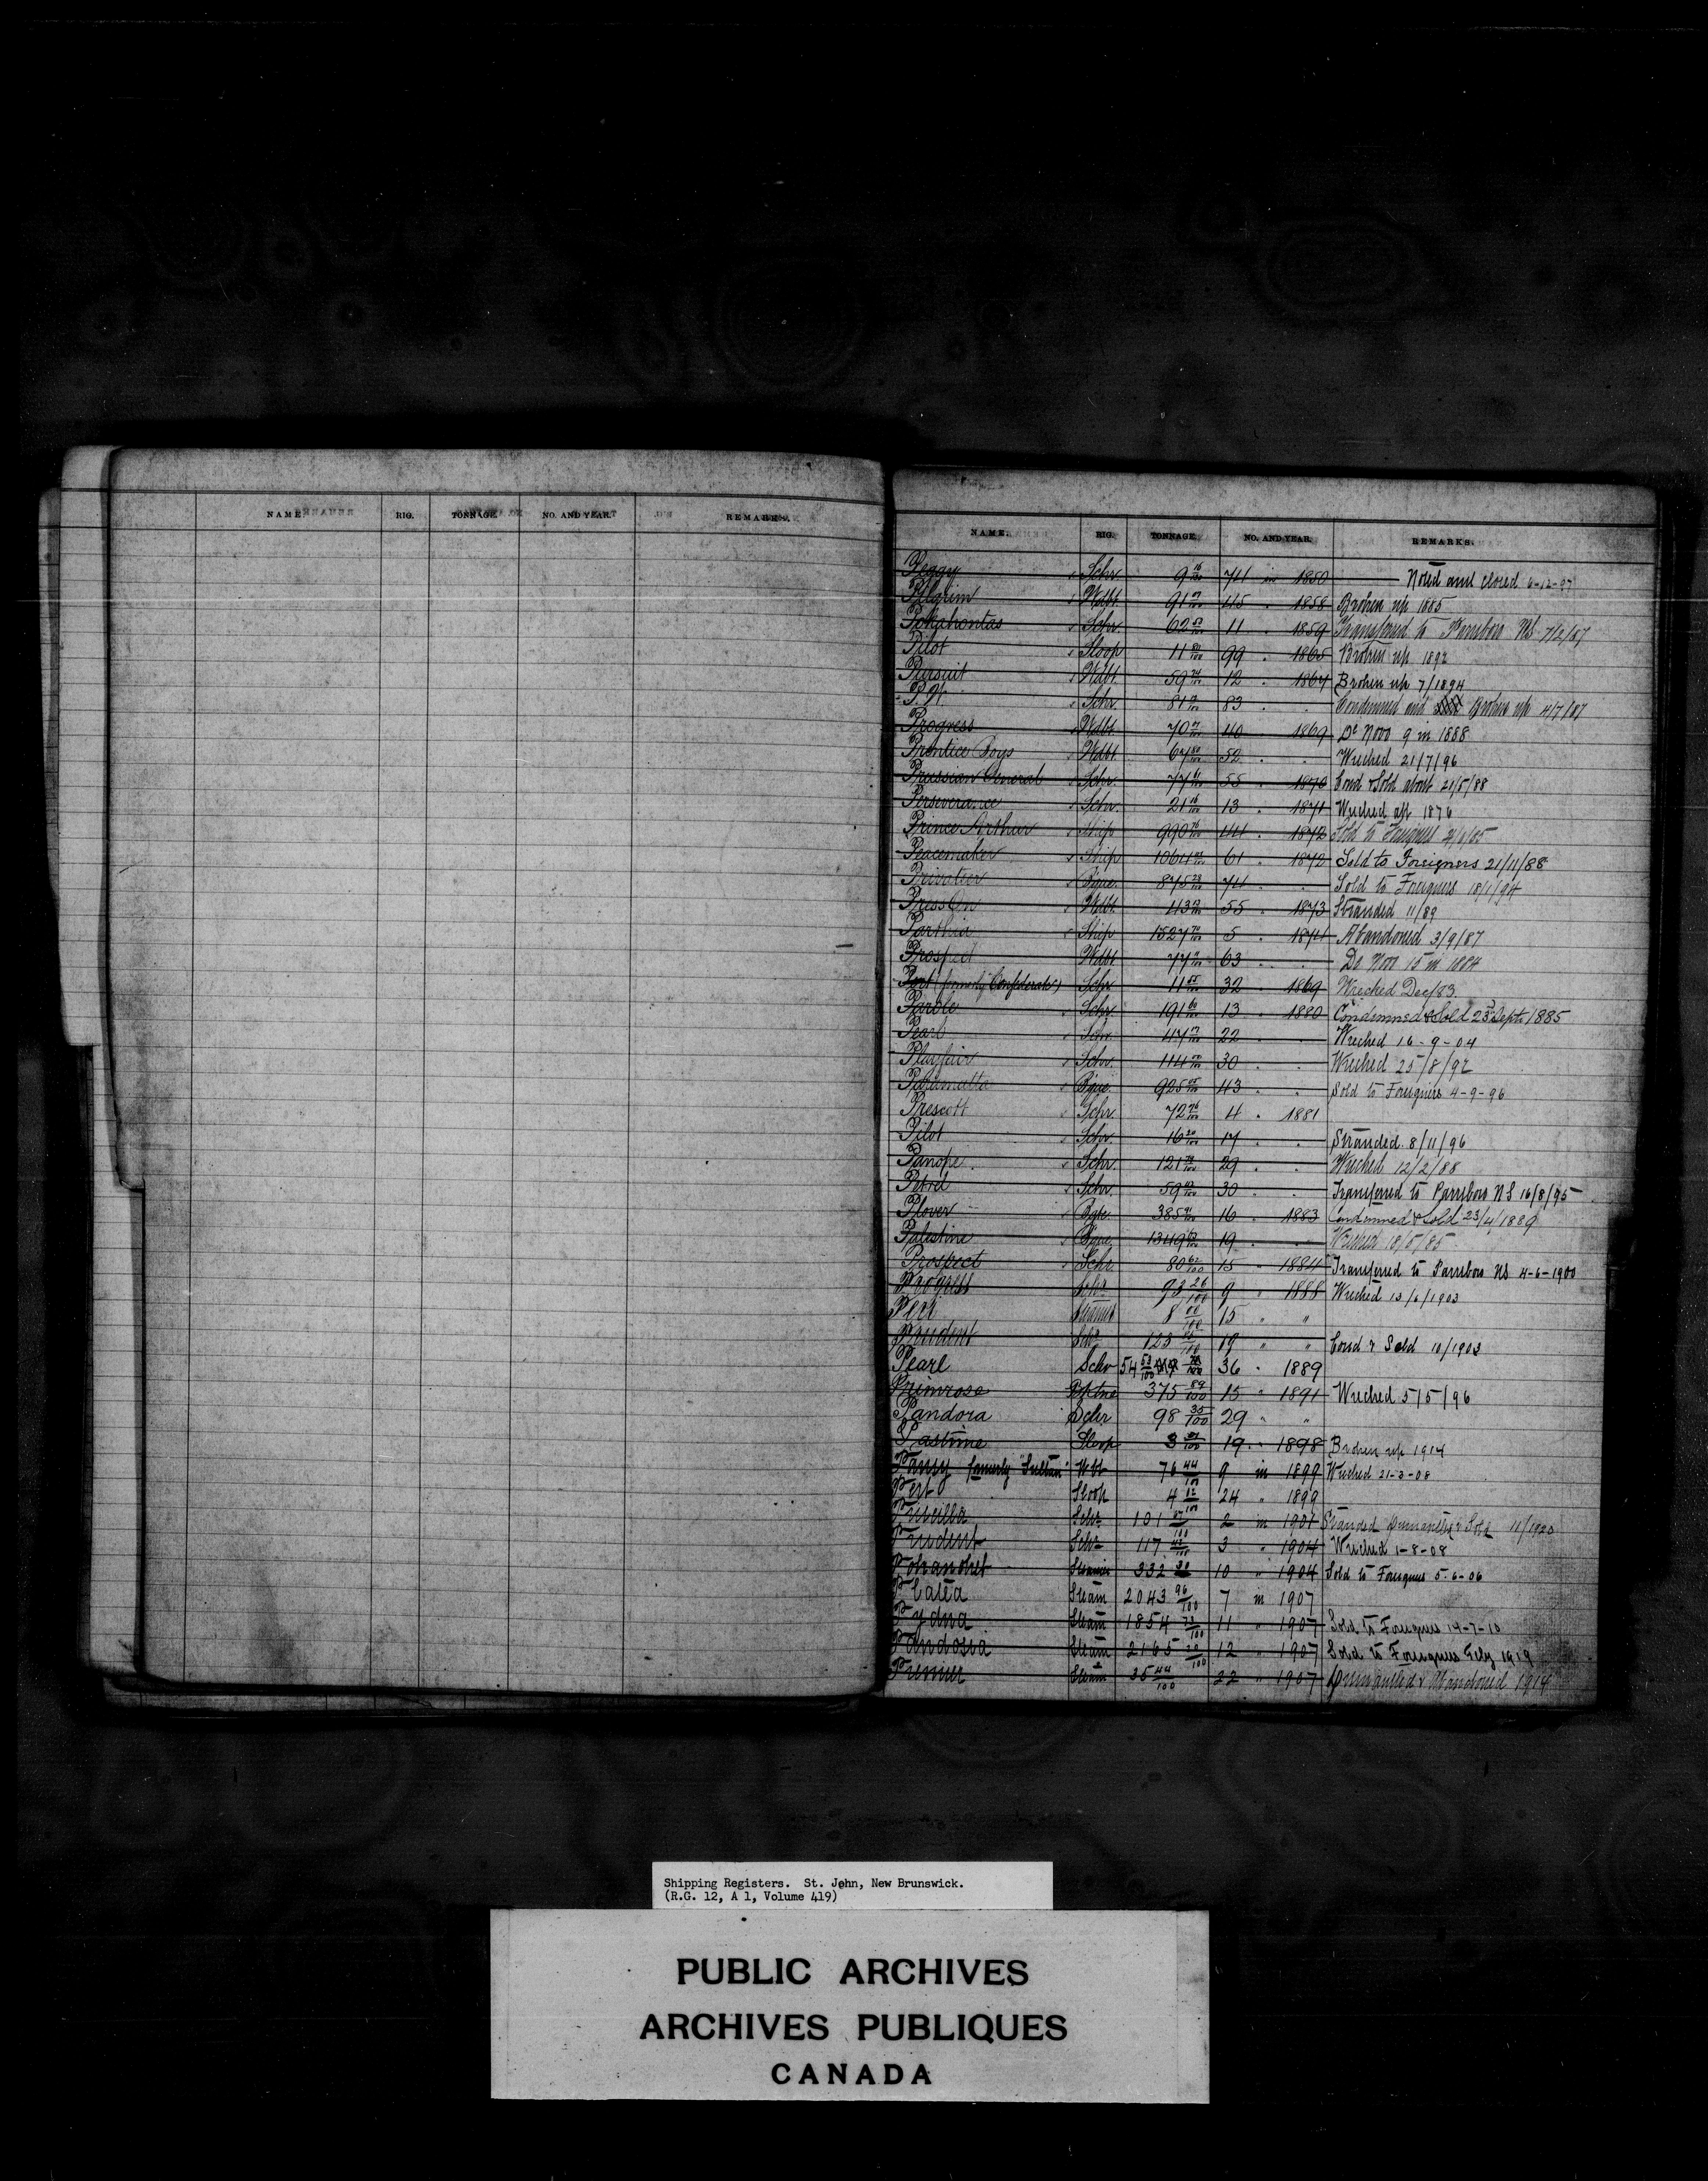 NAME. RIG. TONNAGE. NO. AND YEAR. REMARKS.
NAME. RIG. TONNAGE. NO. AND YEAR. REMARKS.
Peggy Schr 9 16/100 74 in 1850 Noted and closed 6-12-97
Pilgrim Wdbt. 91 45 " 1858 Broken up 1885
Pokahontas Schr. 62 11 " 1859 Transferred to Parrsboro NS 7/2/87
Pilot Sloop 11 80/100 99 " 1865 Broken up 1892
Pursuit Wdbt. 59 12 " 1867 Broken up 7/1894
Schr. 81 83 " " Condemned and Broken up 4/7/87
Progress Wdbt. 70 40 " 1869 De Novo 9 in 1888
Prentice Boys Wdbt. 67 80/100 52 " " Wrecked 21/7/96
Prussian General Schr. 77 55 " 1870 Cond & Sold about 21/5/88
Perseverance Schr. 21 16/100 13 " 1871 Wrecked 1876
Prince Arthur Ship 990 76/100 44 " 1872 Sold to Foreigners
Peacemaker Ship 1064 61 " 1872 Sold to Foreigners 21/11/88
Privateer Bque. 875 28/100 74 " " Sold to Foreigners 18/1/94
Press On Wdbt. 43 55 " 1873 Stranded 11/89
Parthia Ship 1527 5 " 1874 Abandoned 3/9/87
Prospect Wdbt 77 63 " " De Novo 15 in 1884
(formerly Confederate) Schr 11 55/100 32 " 1869 Wrecked Dec/83
Parole Schr. 191 60/100 13 " 1880 Condemned & Sold 23rd Sept. 1885
Pearl Schr. 47 22 " " Wrecked 16-9-04
Playfair Schr. 114 30 " " Wrecked 25/8/92
Paramatta Bque. 925 43 " " Sold to Foreigners 4-9-96
Prescott Schr. 72 76/100 4 " 1881
Pilot Schr. 16 20/100 17 " " Stranded 8/11/96
Panope Schr. 121 29 " " Wrecked 12/2/88
Petrel Schr. 59 30 " " Transferred to Parrsboro NS 16/8/95
Plover Bgte. 385 16 " 1883 Condemned & Sold 23/4/1889
Palestine Bque. 1349 19 " " Wrecked 18/5/85
Prospect Schr. 80 62/100 15 " 1884 Transferred to Parrsboro NS 4-6-1900
Progress Schr 93 26/100 9 " 1888 Wrecked 13/6/1903
Peri Steamer 8 00/100 15 " "
Prudent Schr 123 19 " " Cond & Sold 10/1903
Pearl Schr 54 53/100 36 " 1889
Primrose Bktne 375 89/100 15 " 1891 Wrecked 5/5/96
Pandora Schr 98 35/100 29 " "
Pastime Sloop 3 19 " 1898 Broken up 1914
Pansy formerly "Sultan" W bt 76 44/100 9 in 1899 Wrecked 21-3-08
Pert Sloop 4 12/100 24 " 1899
Priscilla Schr 101 2 in 1901 Stranded Dismantled & Sold 11/1920
Prudent Schr 117 3 " 1904 Wrecked 1-8-08
Pohanoket Steamer 332 10 " 1904 Sold to Foreigners 5-6-06
Platea Steam 2043 96/100 7 in 1907
Pydna Steam 1854 73/100 11 " 1907 Sold to Foreigners 14-7-10
Pandosia Steam 2165 12 " 1907 Sold to Foreigners Feby 1919
Premier Steam 35 44/100 22 " 1907 Dismantled & Abandoned 1914
Shipping Registers. St. John, New Brunswick.
(R.G. 12, A 1, Volume 419)
PUBLIC ARCHIVES
ARCHIVES PUBLIQUES
CANADA